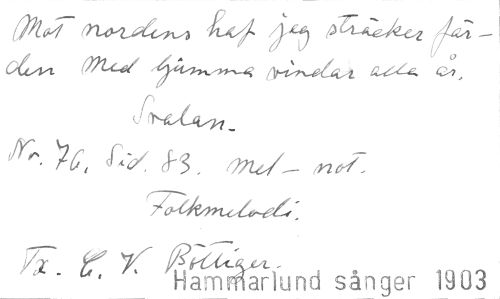 Mot nordens haf jag sträcker fär-
den med ljumma vindar alla år.
Svalan.
Nr. 76, Sid. 83. Mel-not.
Folkmelodi.
Tx. C. V. Böttiger.
Hammarlund sånger 1903